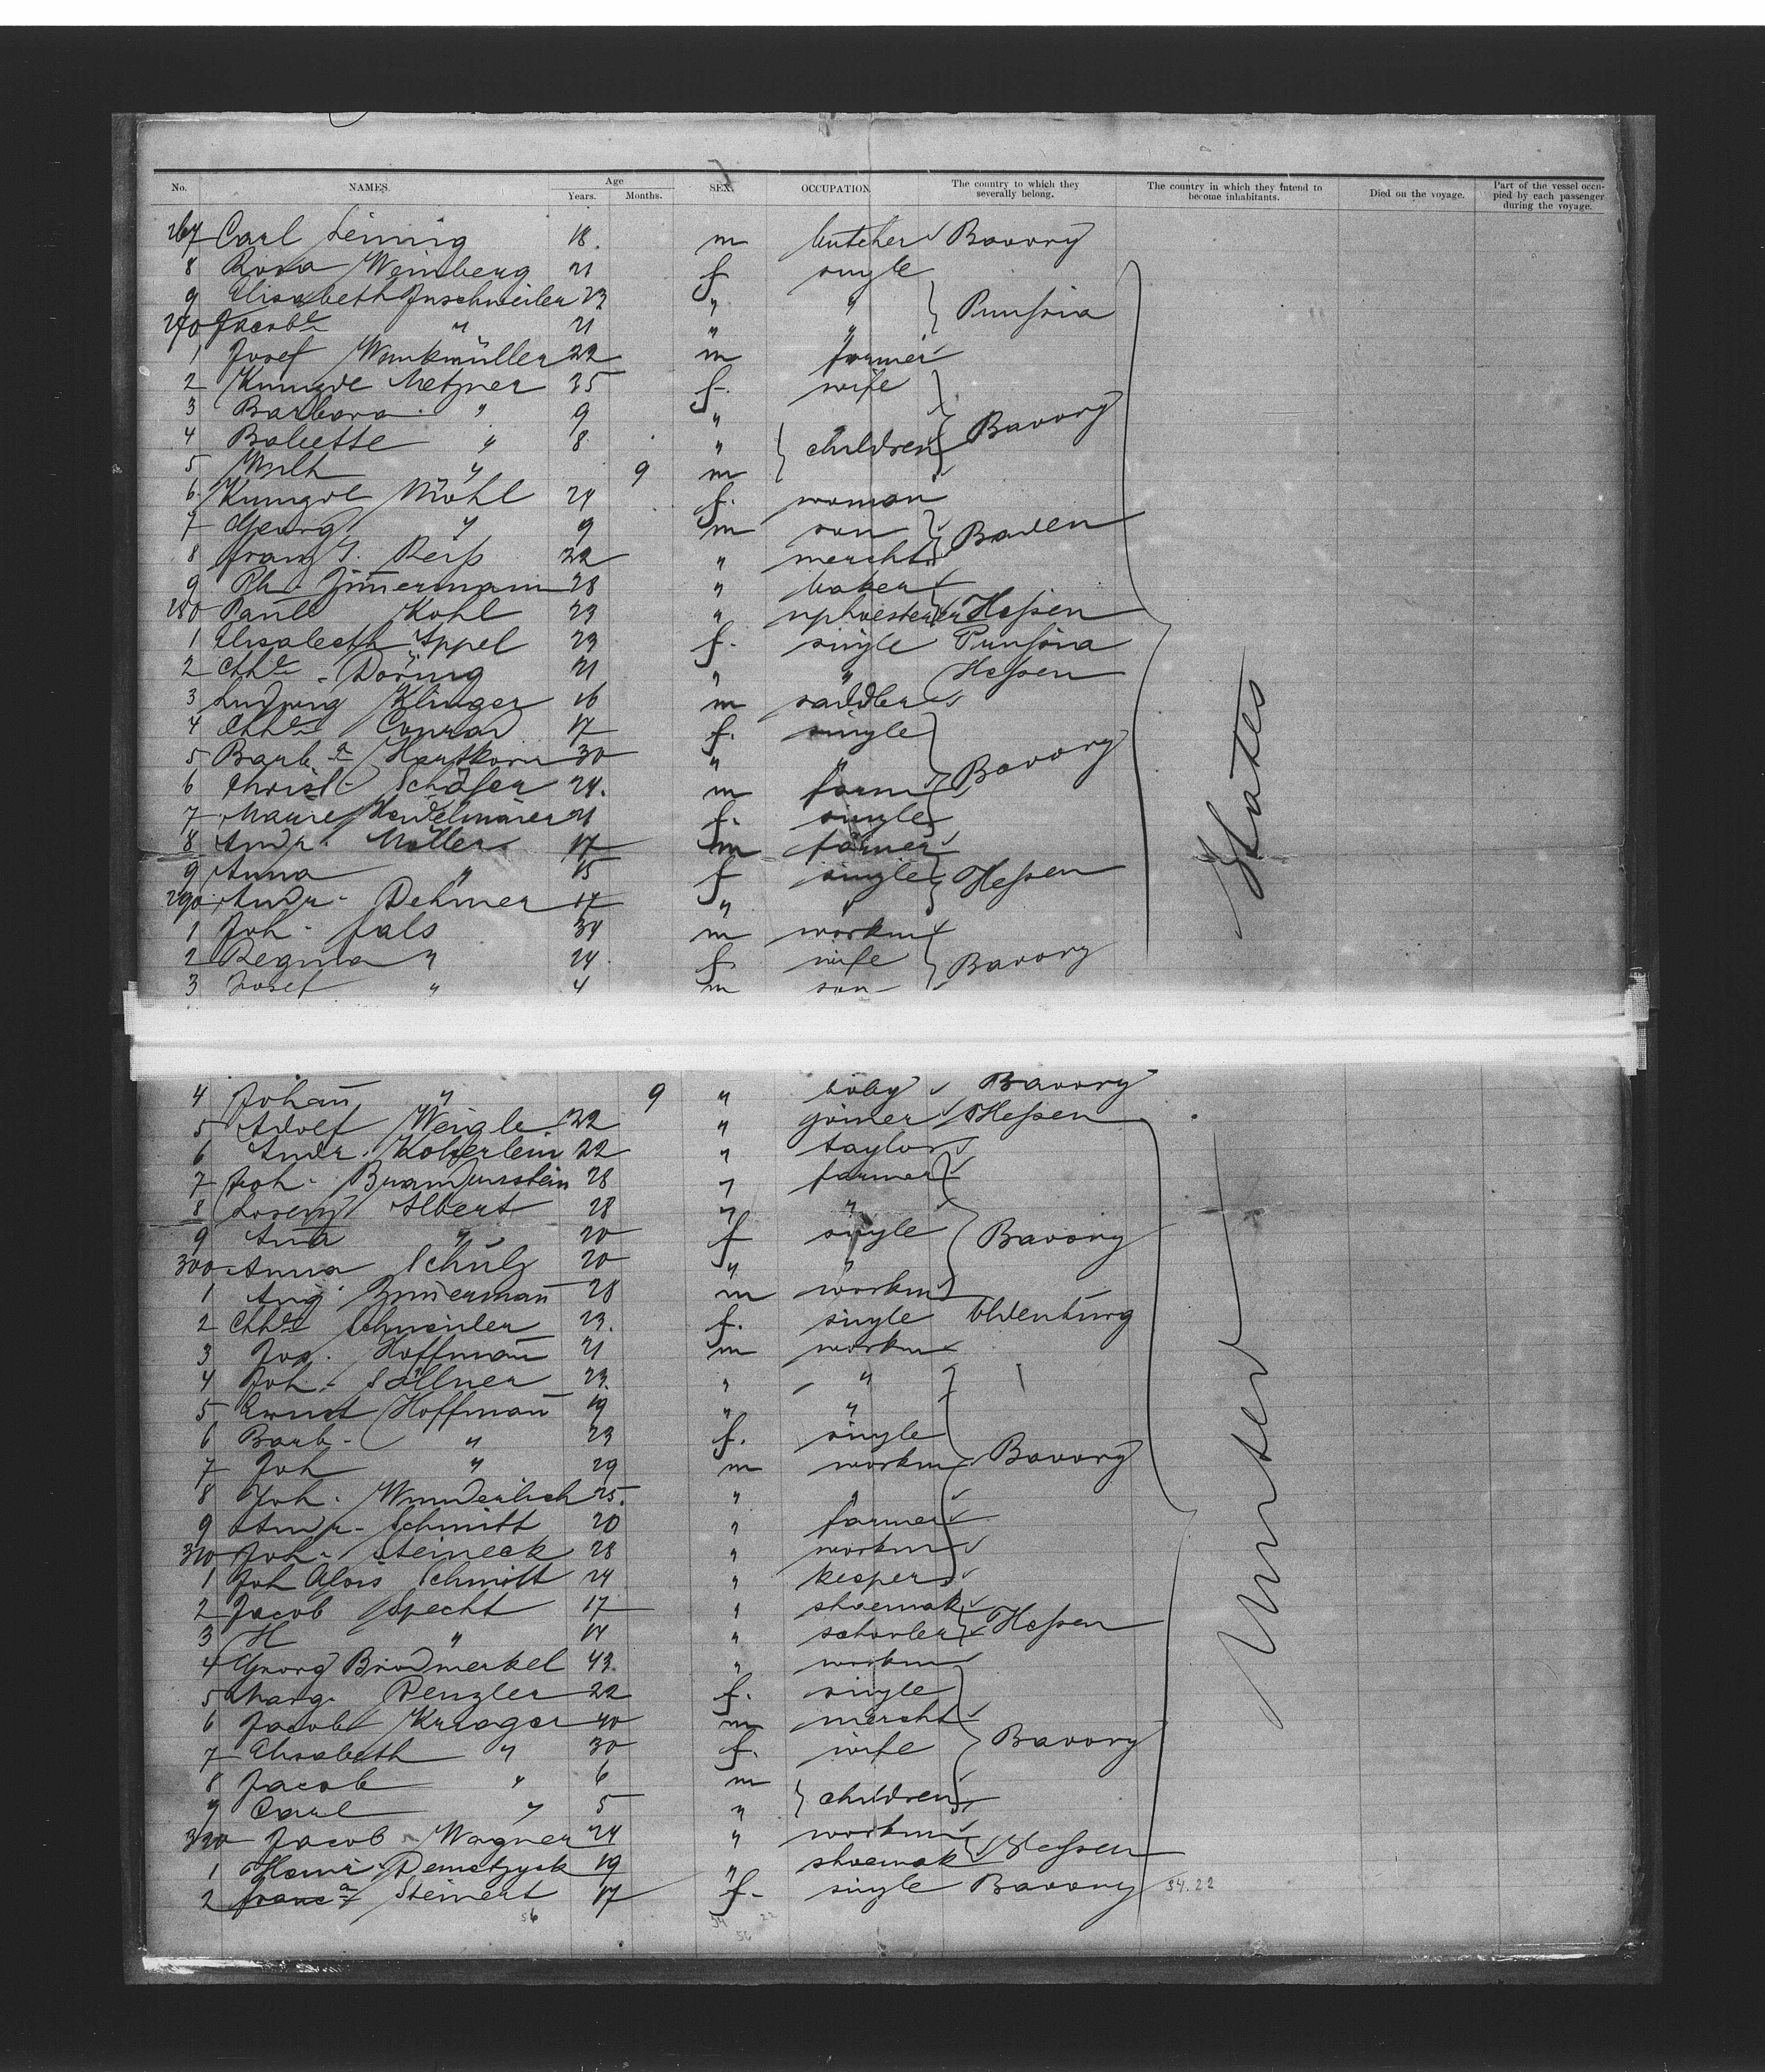 No. NAMES. Age Years. Months. SEX. OCCUPATION The country to which they severally belong. The country in which they intend to become inhabitants. Died on the voyage. Part of the vessel occupied by each passenger during the voyage.
267 Carl Leinnig 18. m butcher Bavory
8 Rosa Weinberg 21 f single
9 Elisabeth Inschweiler 23 " " Prussia
270 Jacobe " 21 " "
1 Josef Winkmüller 22 m farmer
2 Kunigde Metzner 35 f. wife
3 Barbara " 9 "
4 Babette " 8 " children Bavory
5 Wilh " 9 m
6 Kunigde Möhl 24 f. woman
7 Georg " 9 m son Baden
8 Franz J. Reiss 22 " mercht
9 Ph. Zimermann 28 " baker
280 Paull Kohl 23 " upholesterer Hessen
1 Elisabeth Appel 23 f. single Prussia
2 Chhe Döring 21 " " Hessen
3 Ludwig Klinger 16 m saddler
4 Chhe Conrad 17 f. single
5 Barb.a Hartkorn 30 " " Bavory
6 Christ. Schäfer 24. m farm
7 Heidelmaier 21 f. single
8 Andr. Möller 17 m farmer
9 Anna " 15 f single Hessen
290 Andr. Dehmer 17 " "
1 Joh. Fals 34 m workm
2 Regina " 24 f. wife Bavory
3 Josef " 4 m son
States
4 Johan " 9 " baby Bavory
5 Adolf Weigle 22 " joiner Hessen
6 Andr. Koberlein 22 " taylor
7 Joh. 28 " farmer
8 Lorenz Albert 28 " "
9 Ana " 20 f single Bavory
300 Anna Schulz 20 " "
1 Aug. Zimerman 28 m workm
2 Chhe Schneider 23. f. single Oldenburg
3 Jos. Hoffman 21 m workm
4 Joh. Söllner 23. " "
5 Ernst Hoffman 19 " "
6 Barb. " 23 f. single
7 Joh " 29 m workm Bavory
8 Joh. Wunderlich 25. " "
9 Andr. Schmitt 20 " farmer
310 Joh. Steineck 28 " workm
1 Joh Alois Schmitt 24 " kesper
2 Jacob Specht 17 " shoemak
3 H " 14 " Hessen
4 Georg Brodmerkel 43. " workm
5 Marg. Denzler 22 f. single
6 Jacob Krieger 40 m mercht
7 Elisabeth " 30 f. wife Bavory
8 Jacob " 6 m
9 Carl " 5 " children
320 Jacob Wagner 24 " workm
1 19 " shoemak Hessen
2 Franca Steinert 17 f. single Bavory 34.22
United
56 34 22
56